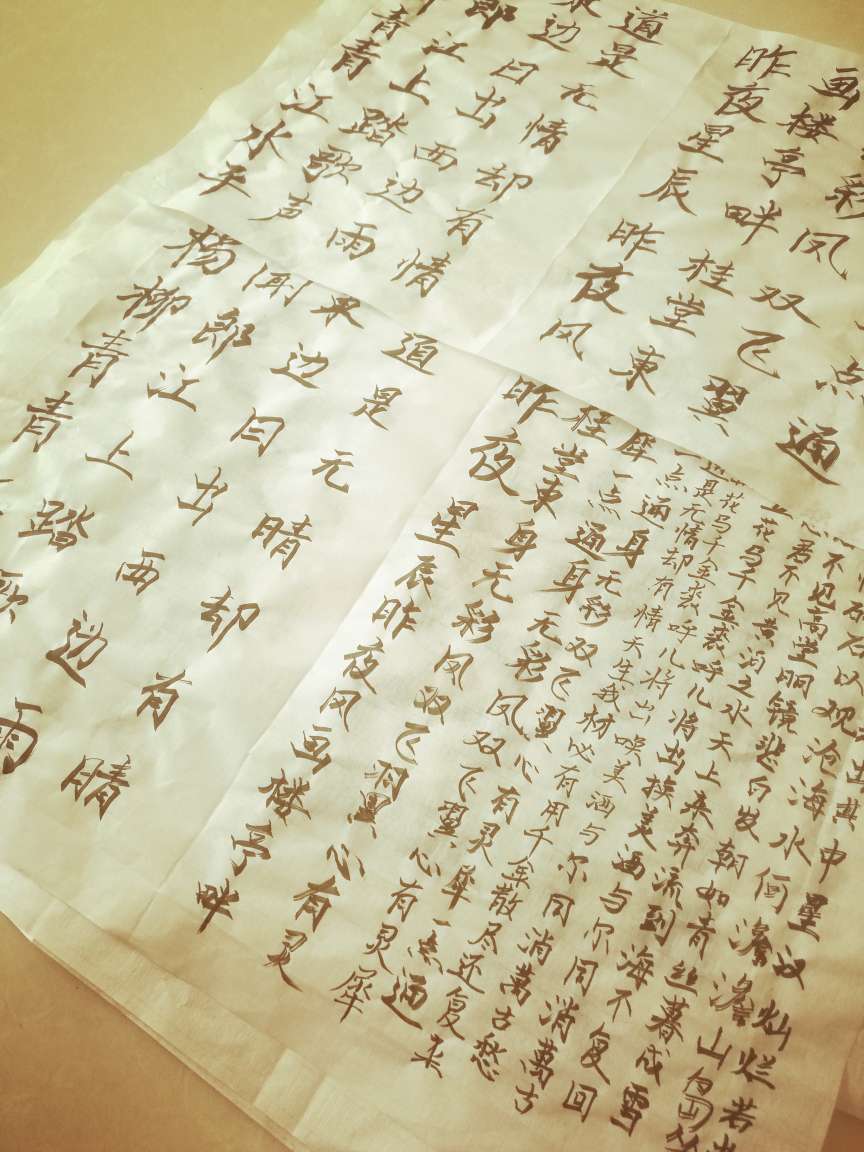 青青江水平
郎江上踏歌声
东边日出西边雨
道是无情却有情
昨夜星辰昨夜风
画楼亭畔桂堂东
彩凤双飞翼
点通
杨柳青青
闻郎江上踏歌
东边日出西边雨
道是无晴却有晴
昨夜星辰昨夜风画楼亭畔
桂堂东身无彩凤双飞翼心有灵
犀一点通身无彩凤双飞翼心有灵犀
一点通身无彩双飞翼心有灵犀一点通
是无情却有情天生我材必有用千金散尽还复来
花马千金裘呼儿将出唤美酒与尔同消萬古愁
花马千金裘呼儿将出换美酒与尔同消萬古
君不见黄河之水天上来奔流到海不复回
不见高堂明镜悲白发朝如青丝暮成雪
石以观沧海水何澹澹山岛
出其中星汉灿烂若出